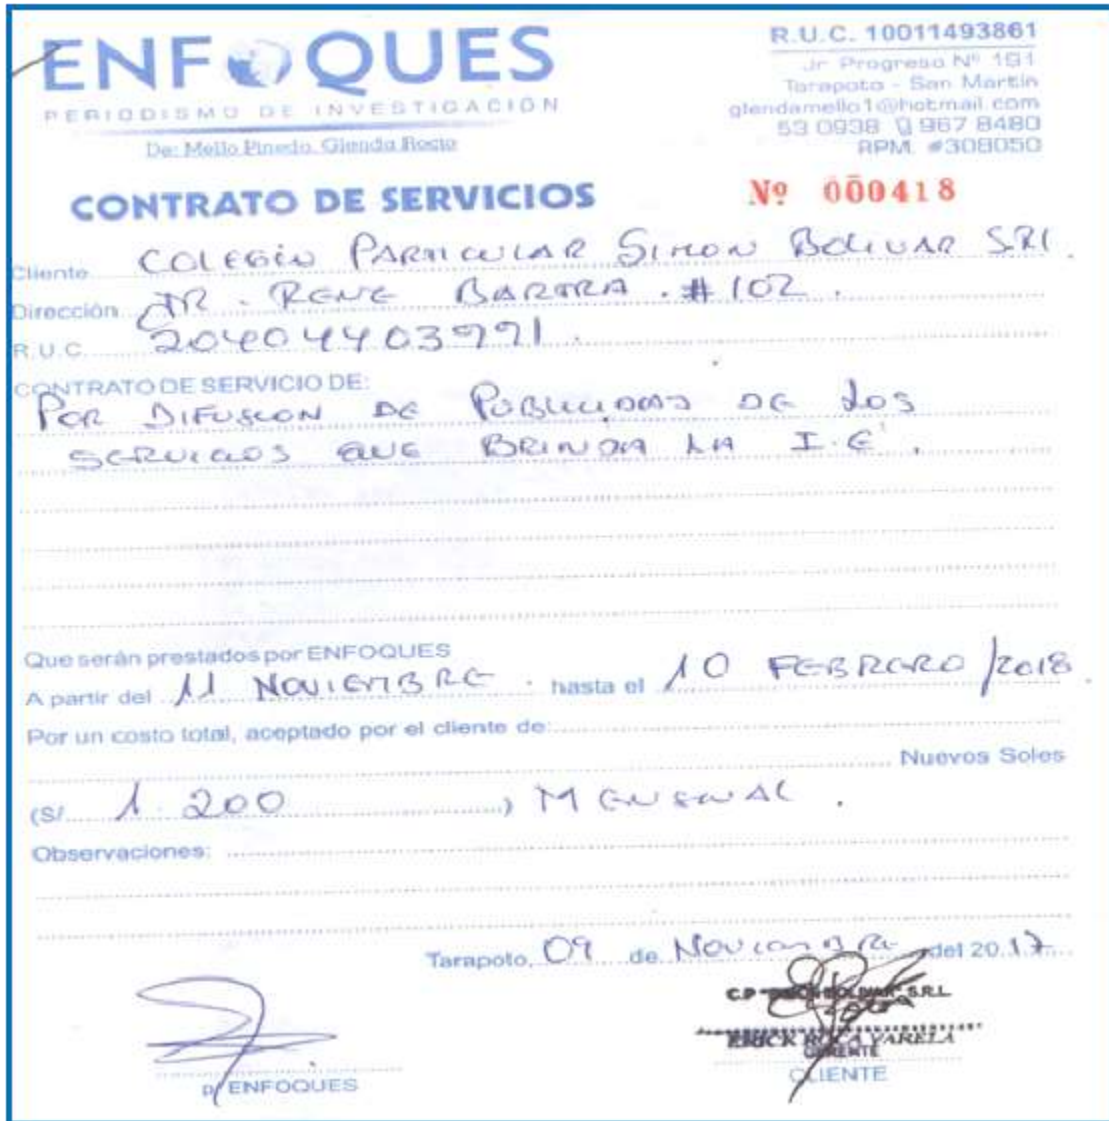 ENFOQUES
PERIODISMO DE INVESTIGACIÓN
De: Mello Pinedo, Glenda Rocio
R.U.C. 10011493861
Jr. Progreso Nº 191
Tarapoto - San Martín
glendamello1@hotmail.com
53 0938 967 8480
RPM. #308050
CONTRATO DE SERVICIOS
Nº 000418
Cliente COLEGIO PARTICULAR SIMON BOLIVAR SRL
Dirección JR. RENE BARTRA . #102 .
R.U.C. 20404403991 .
CONTRATO DE SERVICIO DE:
POR DIFUSION DE PUBLICIDAD DE LOS
SERVICIOS QUE BRINDA LA I.E .
Que serán prestados por ENFOQUES
A partir del 11 NOVIEMBRE . hasta el 10 FEBRERO /2018
Por un costo total, aceptado por el cliente de:
Nuevos Soles
(S/ 1.200 ) MENSUAL .
Observaciones:
Tarapoto, 09 de Noviembre del 2017
C.P. BOLIVAR S.R.L
ERICK VARELA
GERENTE
p/ ENFOQUES
CLIENTE